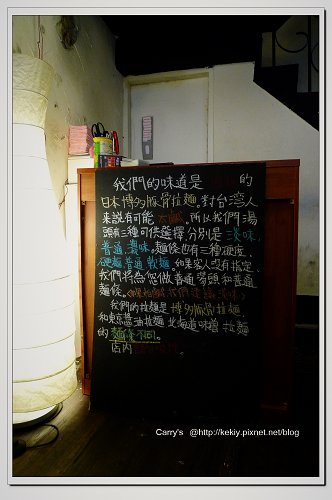 我們的味道是 的
日本博多豚骨拉麵。對台灣人
來說有可能太鹹,所以我們湯
頭有三種可供選擇,分別是淡味,
普通,濃味。麵條也有三種硬度,
硬麵 普通 軟麵 如果客人沒有指定
我們將為您做普通湯頭和普通
麵條。
我們的拉麵是博多豚骨拉麵
和東京醬油拉麵 北海道味噌拉麵
的麵條不同。
店內
Carry's @http://kekiy.pixnet.net/blog